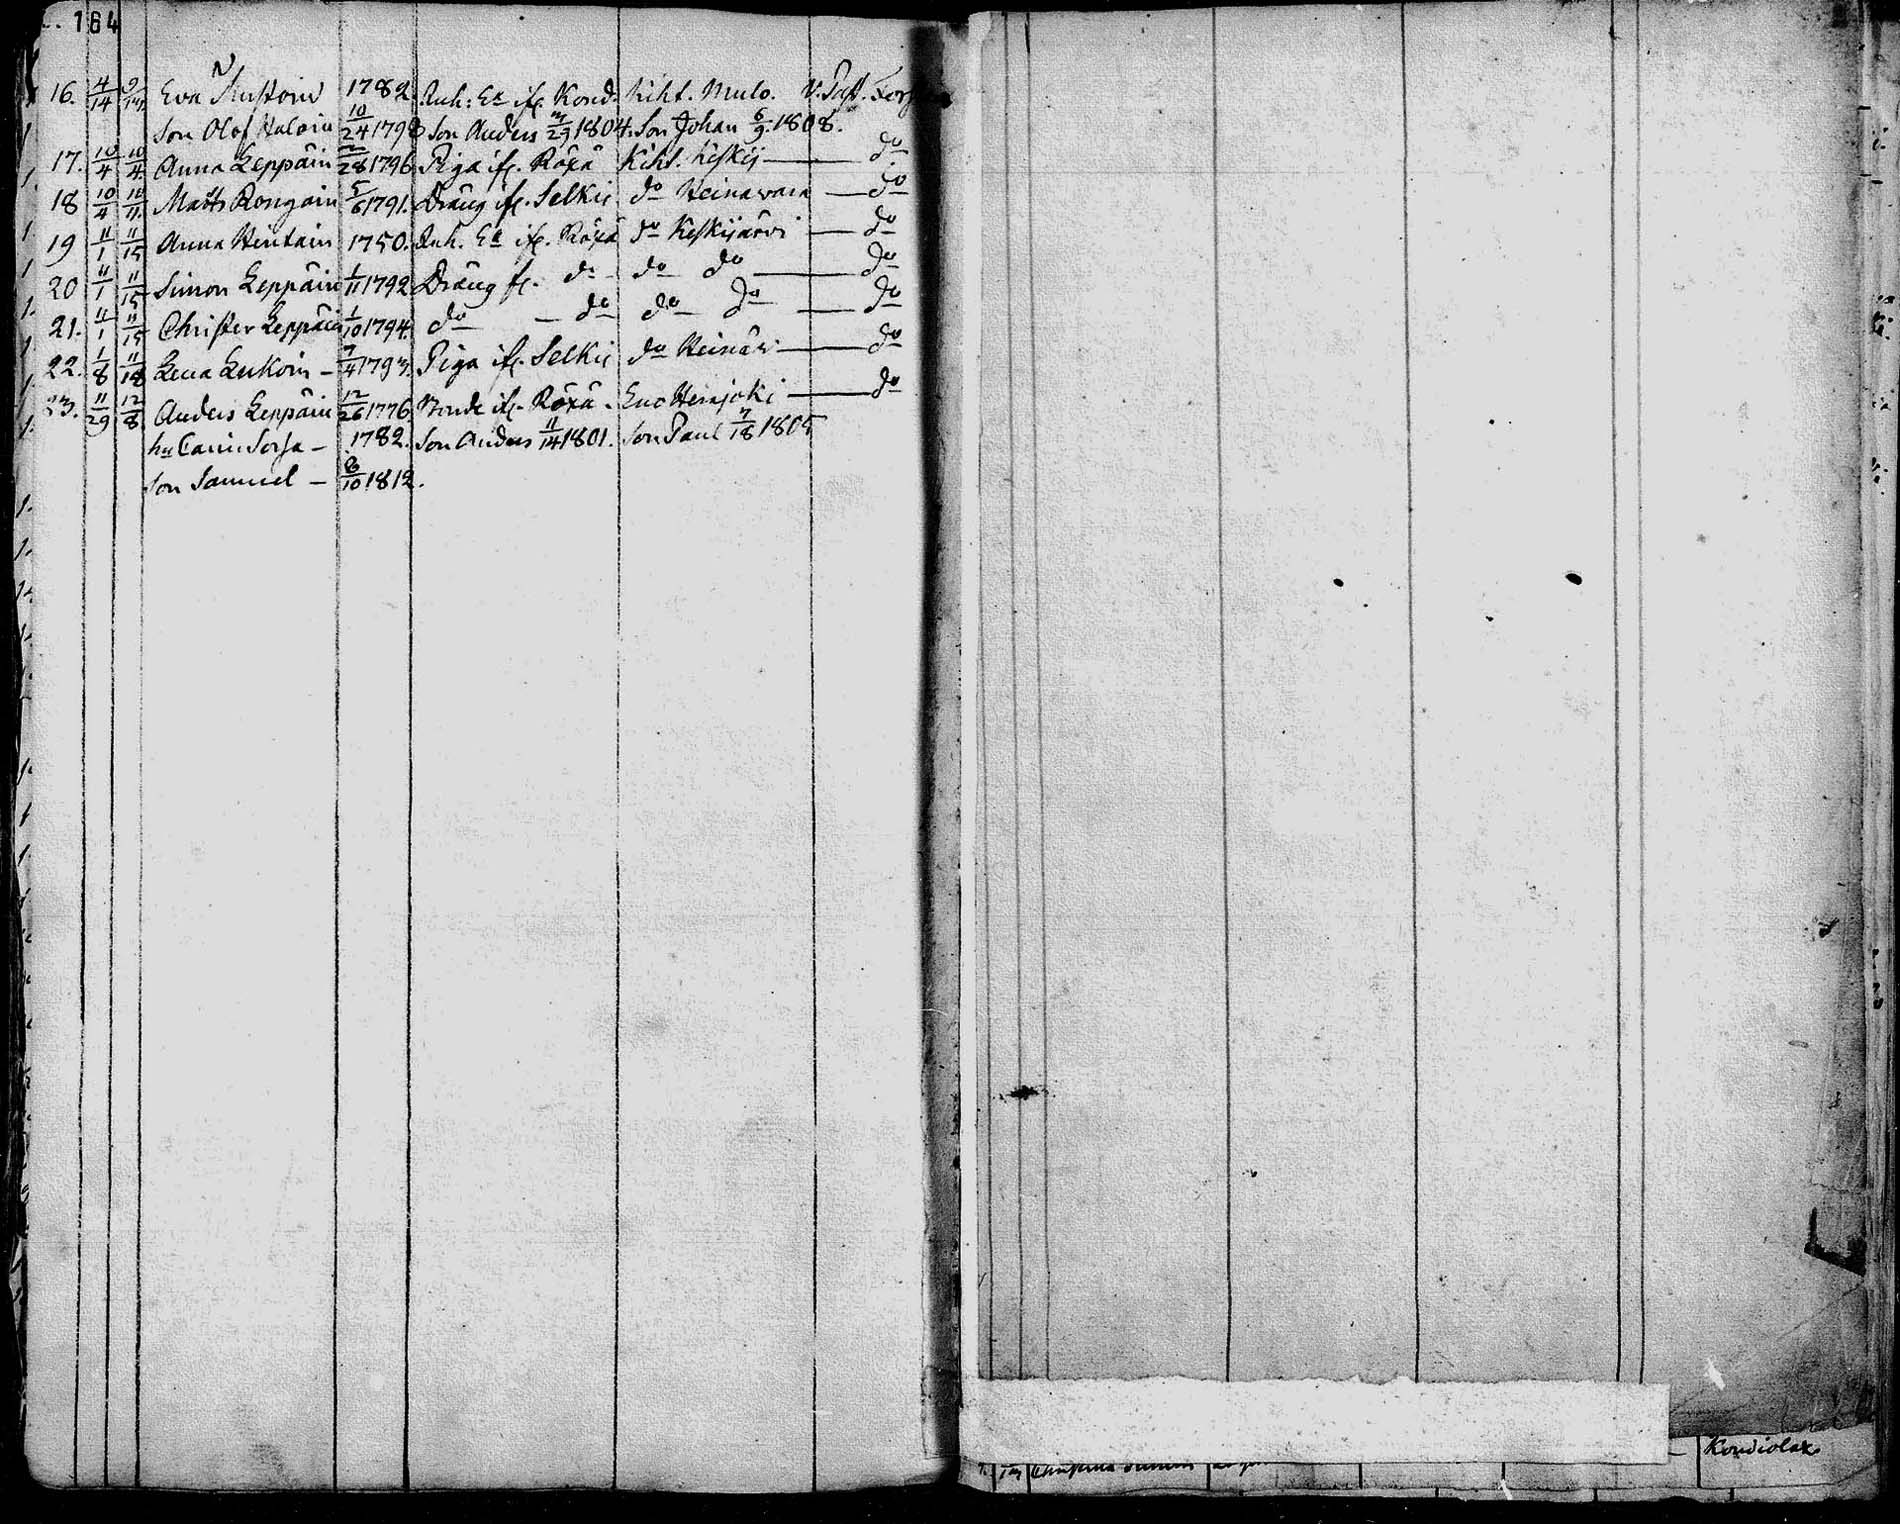 164
16. 4/14 9/ Eva 1782. Inh: Ea ifr. Kond. Kiht. Mulo. V. Past.
Son Olof Haloin 10/24 1798 Son Anders 3/27 1804. Son Johan 6/9. 1808.
17. 10/4 10/4. Anna Leppäin 2/28 1796 Piga ifr. Röxä Kiht. Keskij — do
18 10/4 10/11. Matts Rongain 5/6 1791. Dräng ifr. Selkis do Heinawara — do
19 11/1 11/15 Anna Hintain 1750. Inh. Ea ifr. Röxä do Keskijärvi — do
20 11/1 11/15 Simon Leppäin 1/11 1792 Dräng fr. do do do — do
21. 11/1 11/15 Christer Leppäin 1/10 1794. do — do do do — do
22. 1/8 11/18 Lena Lukoin — 7/4 1793. Piga ifr. Selkis do Heinäv — do
23. 11/29 12/8 Anders Leppäin 12/26 1776. Bonde ifr. Röxä. Eno Heinjoki — do
hu Carin Sorsa — 1782. Son Anders 11/14 1801. Son Paul 7/18 1805
Son Samuel — 8/10 1812.
Kondiolax